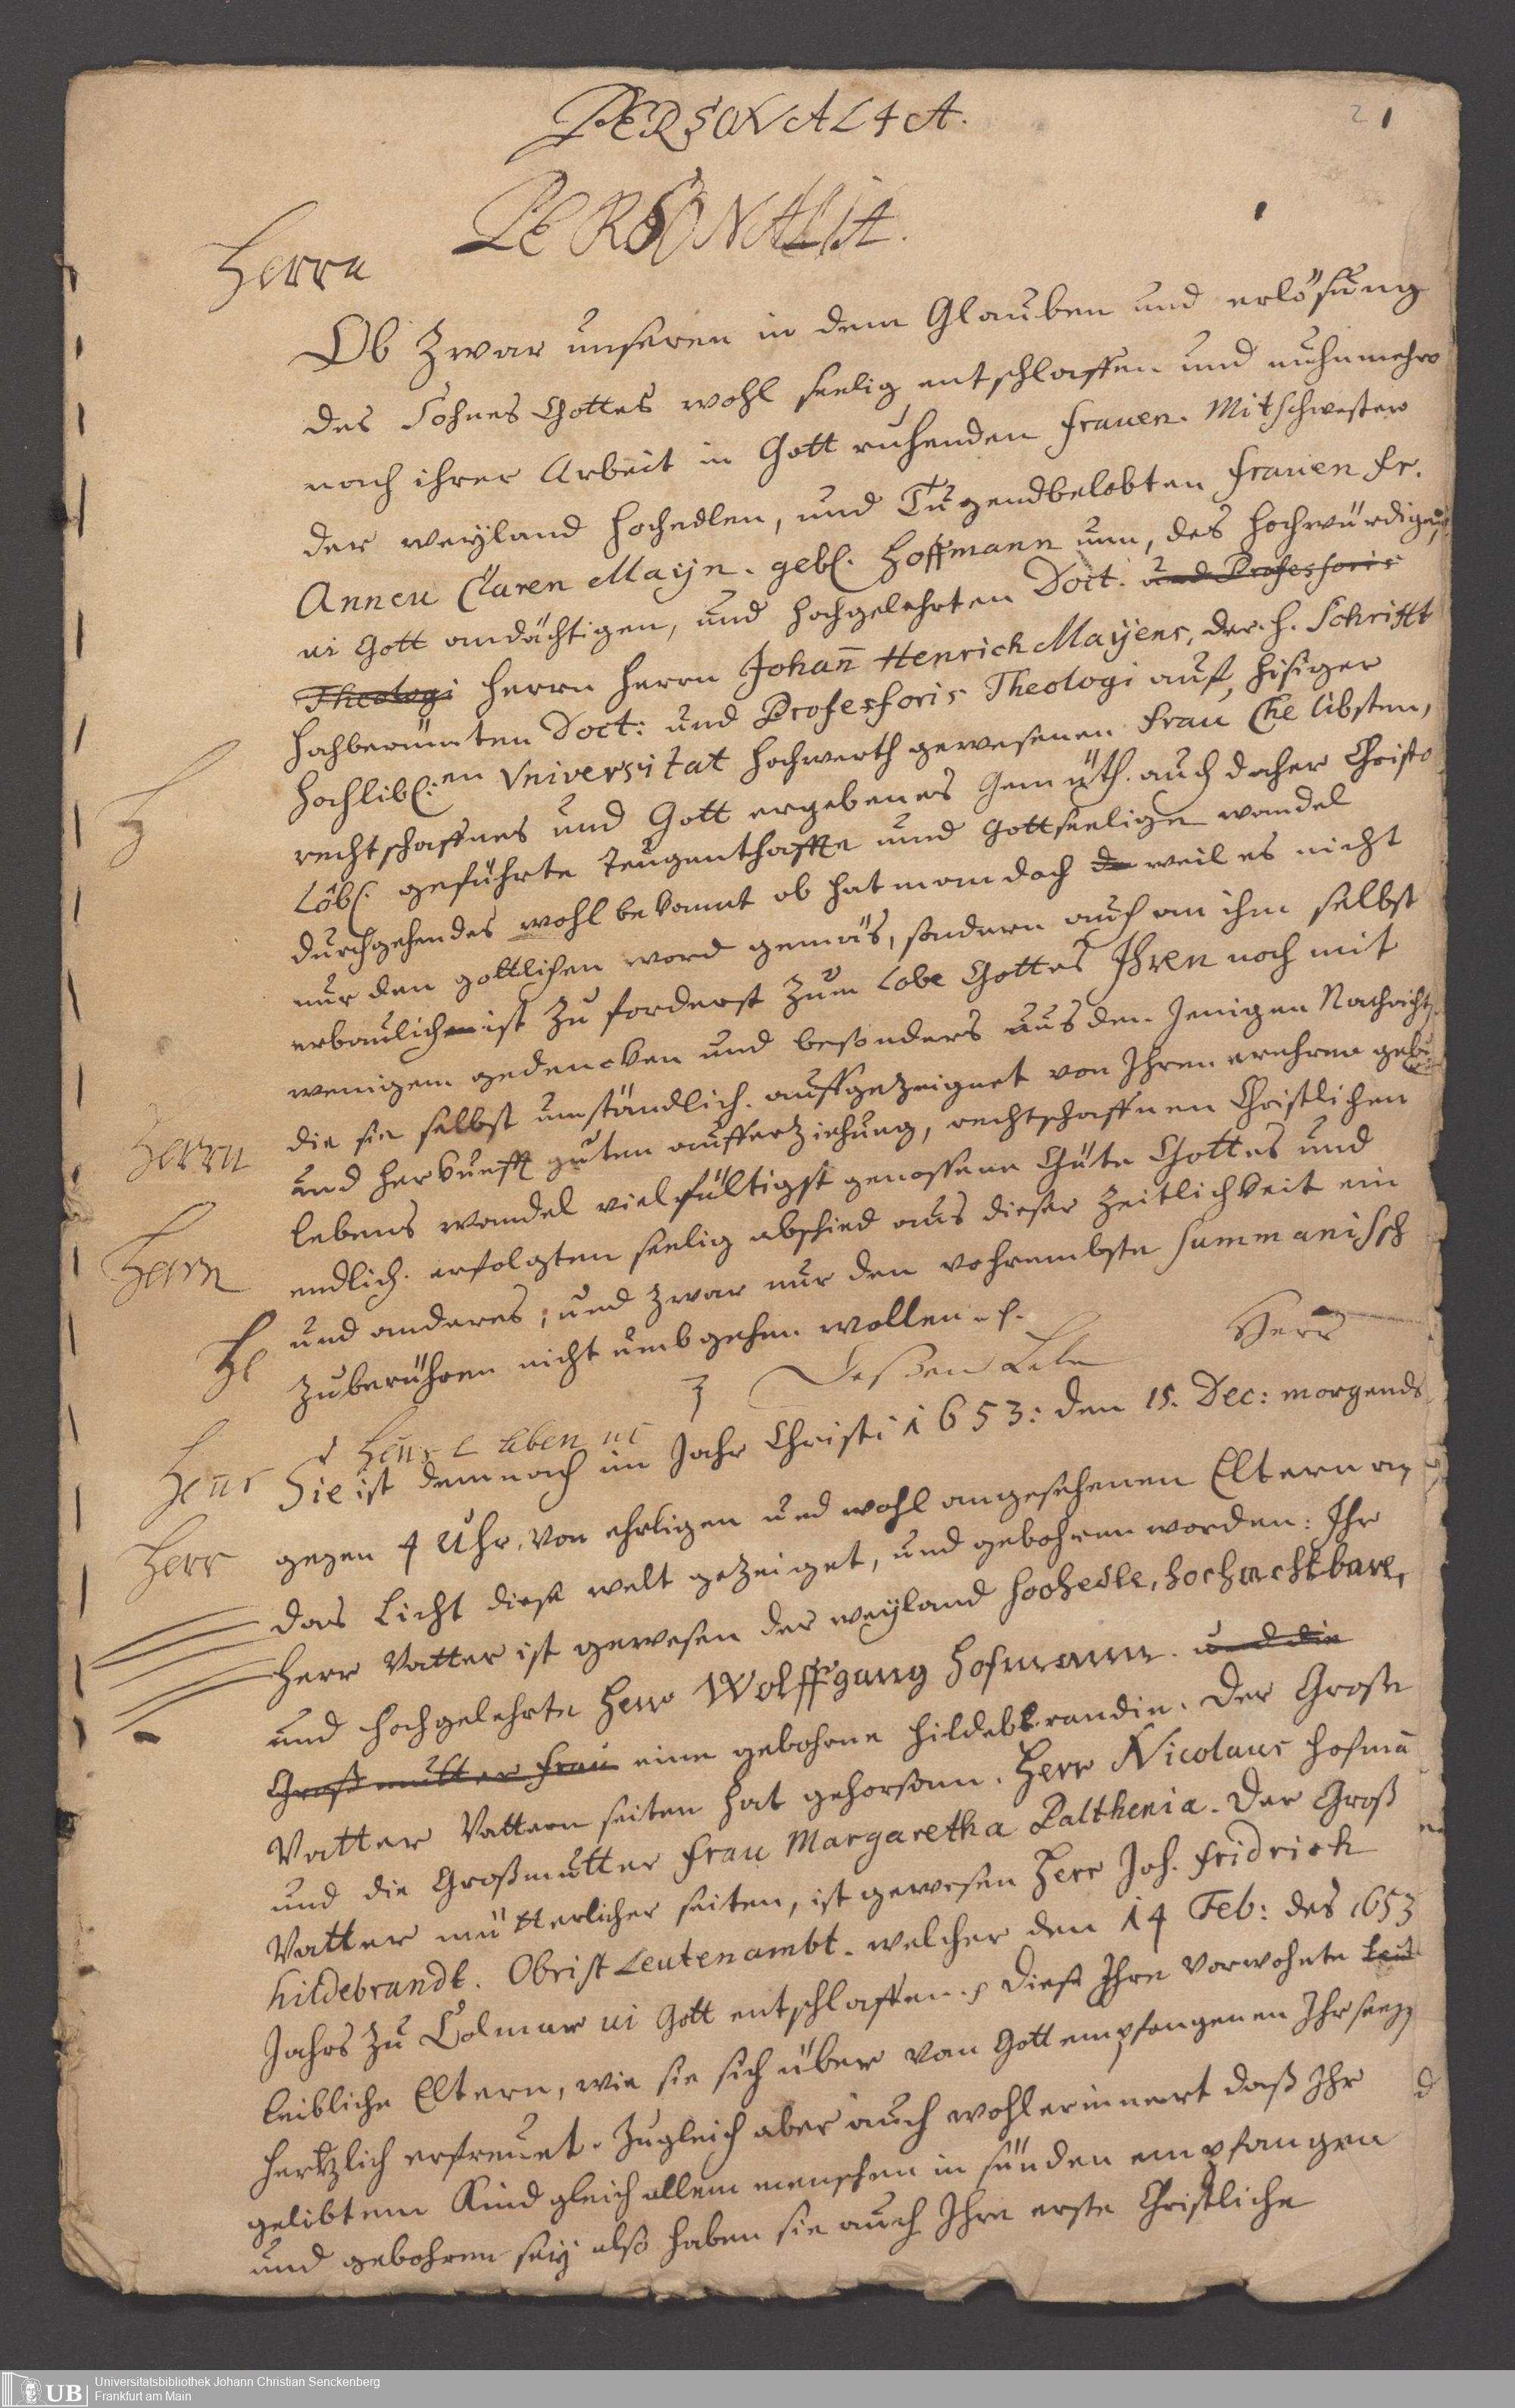 PERSONALIA.
21
PERSONALIA.
Herrn
Ob zwar unseren in dem Glauben und erlösung
des Sohnes Gottes wohl seelig entschlaffen und nuhnmehro
nach ihrer Arbeit in Gott ruhenden Frauen. Mitschwester
der weyland hochedlen, und Tugendbelobten Frauen Fr.
Annen Claren Mayn. gebl. Hoffmann nun, des hochwürdigen,
in Gott andächtigen, und hochgelehrten Doct: und Professoris
Theologi Herrn Herrn Johan̄ Henrich Mayens, der. h. Schrifft
hochberümten Doct: und Professoris Theologi auf hisiger
hochlibl:en Vniversitat hochwerth gewesenen Frau Ehe libsten,
rechtschaffnes und Gott ergebenes Gemüth. auch daher Christo
Löbl. geführte teugenthaffte und gottseelige wandel
durchgehendes wohl bekannt ob hat man doch da weil es nicht
nur den gottlichen word gemäs, sondern auch an ihm selbst
erbaulichen ist zu forderst zum Lobe Gottes Ihren noch mit
wenigem gedencken und besonders aus den Jenigen Nachricht
die sie selbst umständlich. auffgezeignet von Ihren erehren
und herkunfft guten aufferziehung, rechtschaffnen Christlichen
lebens wandel vielfältigst genossene Güte Gottes und
endlich. erfolgten seelig abschied aus dieser zeitlichkeit ein
und anderes, und zwar nur den vohrembste summarisch
zuberühren nicht umbgehen wollen.
Herrn
Herrn
Deßen Lebe
Herr
Sie ist demnach im Jahr Christi 1653: den 15. Dec: morgends
gegen 4 Uhr, von ehrligen und wohl angesehenen Eltern an
das Licht diese welt gezeiget, und gebohren worden: Ihr
Herr
Herr Vatter ist gewesen der weyland hochedle, hochachtbare,
und hochgelehrte Herr Wolffgang Hofmann. und die
Großmutter Frau eine gebohrne Hildebrandin. Der Große
Vatter Vattern seiten hat gehorsam. Herr Nicolaus Hofmā
und die Großmutter Frau Margaretha Palthenia. Der Groß
Vatter mütterlicher seiten, ist gewesen Herr Joh. Fridrich
Hildebrandt. Obrist Leutenambt. welcher den 14 Feb: des 1653
Jahrs zu Colmar in Gott entschlaffen. Diese Ihre vorwohnte
leibliche Eltern, wie sie sich über von Gott empfangenen
hertzlich erfreuet. zugleich aber auch wohl erinnert daß Ihr
gelibtem Kind gleich allem menschen in sünden empfangen
und gebohren sey also haben sie auch Ihre erste Christliche
UB
Universitätsbibliothek Johann Christian Senckenberg
Frankfurt am Main